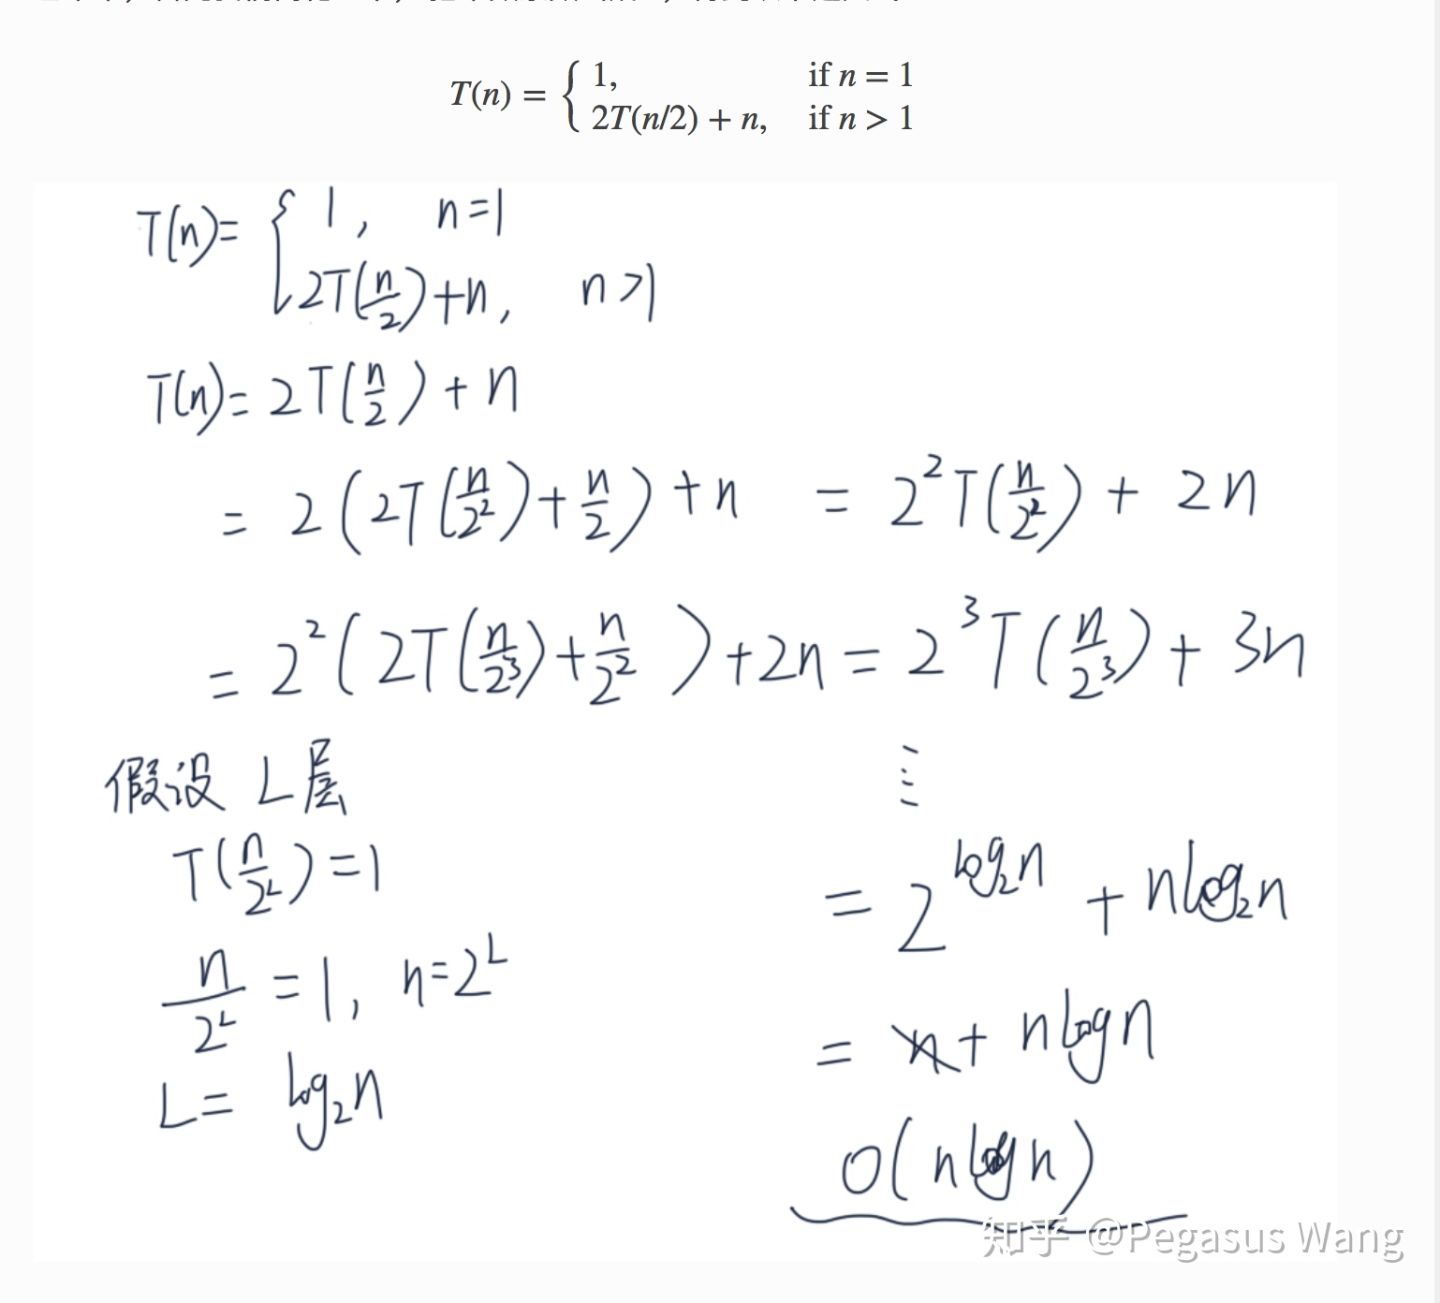 T(n) = { 1, if n = 1
2T(n/2) + n, if n > 1
T(n)= { 1, n=1
2T(n/2)+n, n>1
T(n)= 2T(n/2)+n
= 2(2T(n/2²)+n/2)+n = 2²T(n/2²)+2n
= 2²(2T(n/2³)+n/2²)+2n = 2³T(n/2³)+3n
⋮
假设 L层
T(n/2^L)=1
n/2^L =1, n=2^L
L= log₂n
= 2^(log₂n) + nlog₂n
= n + nlogn
O(nlogn)
知乎 @Pegasus Wang